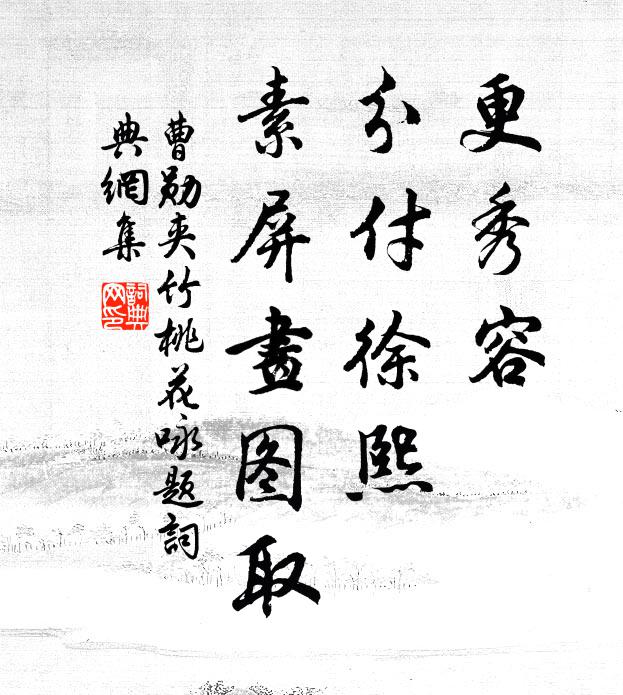 更秀容
分付徐熙
素屏畫图取
曹勛夹竹桃花咏题詞
典網集
詞典
网印